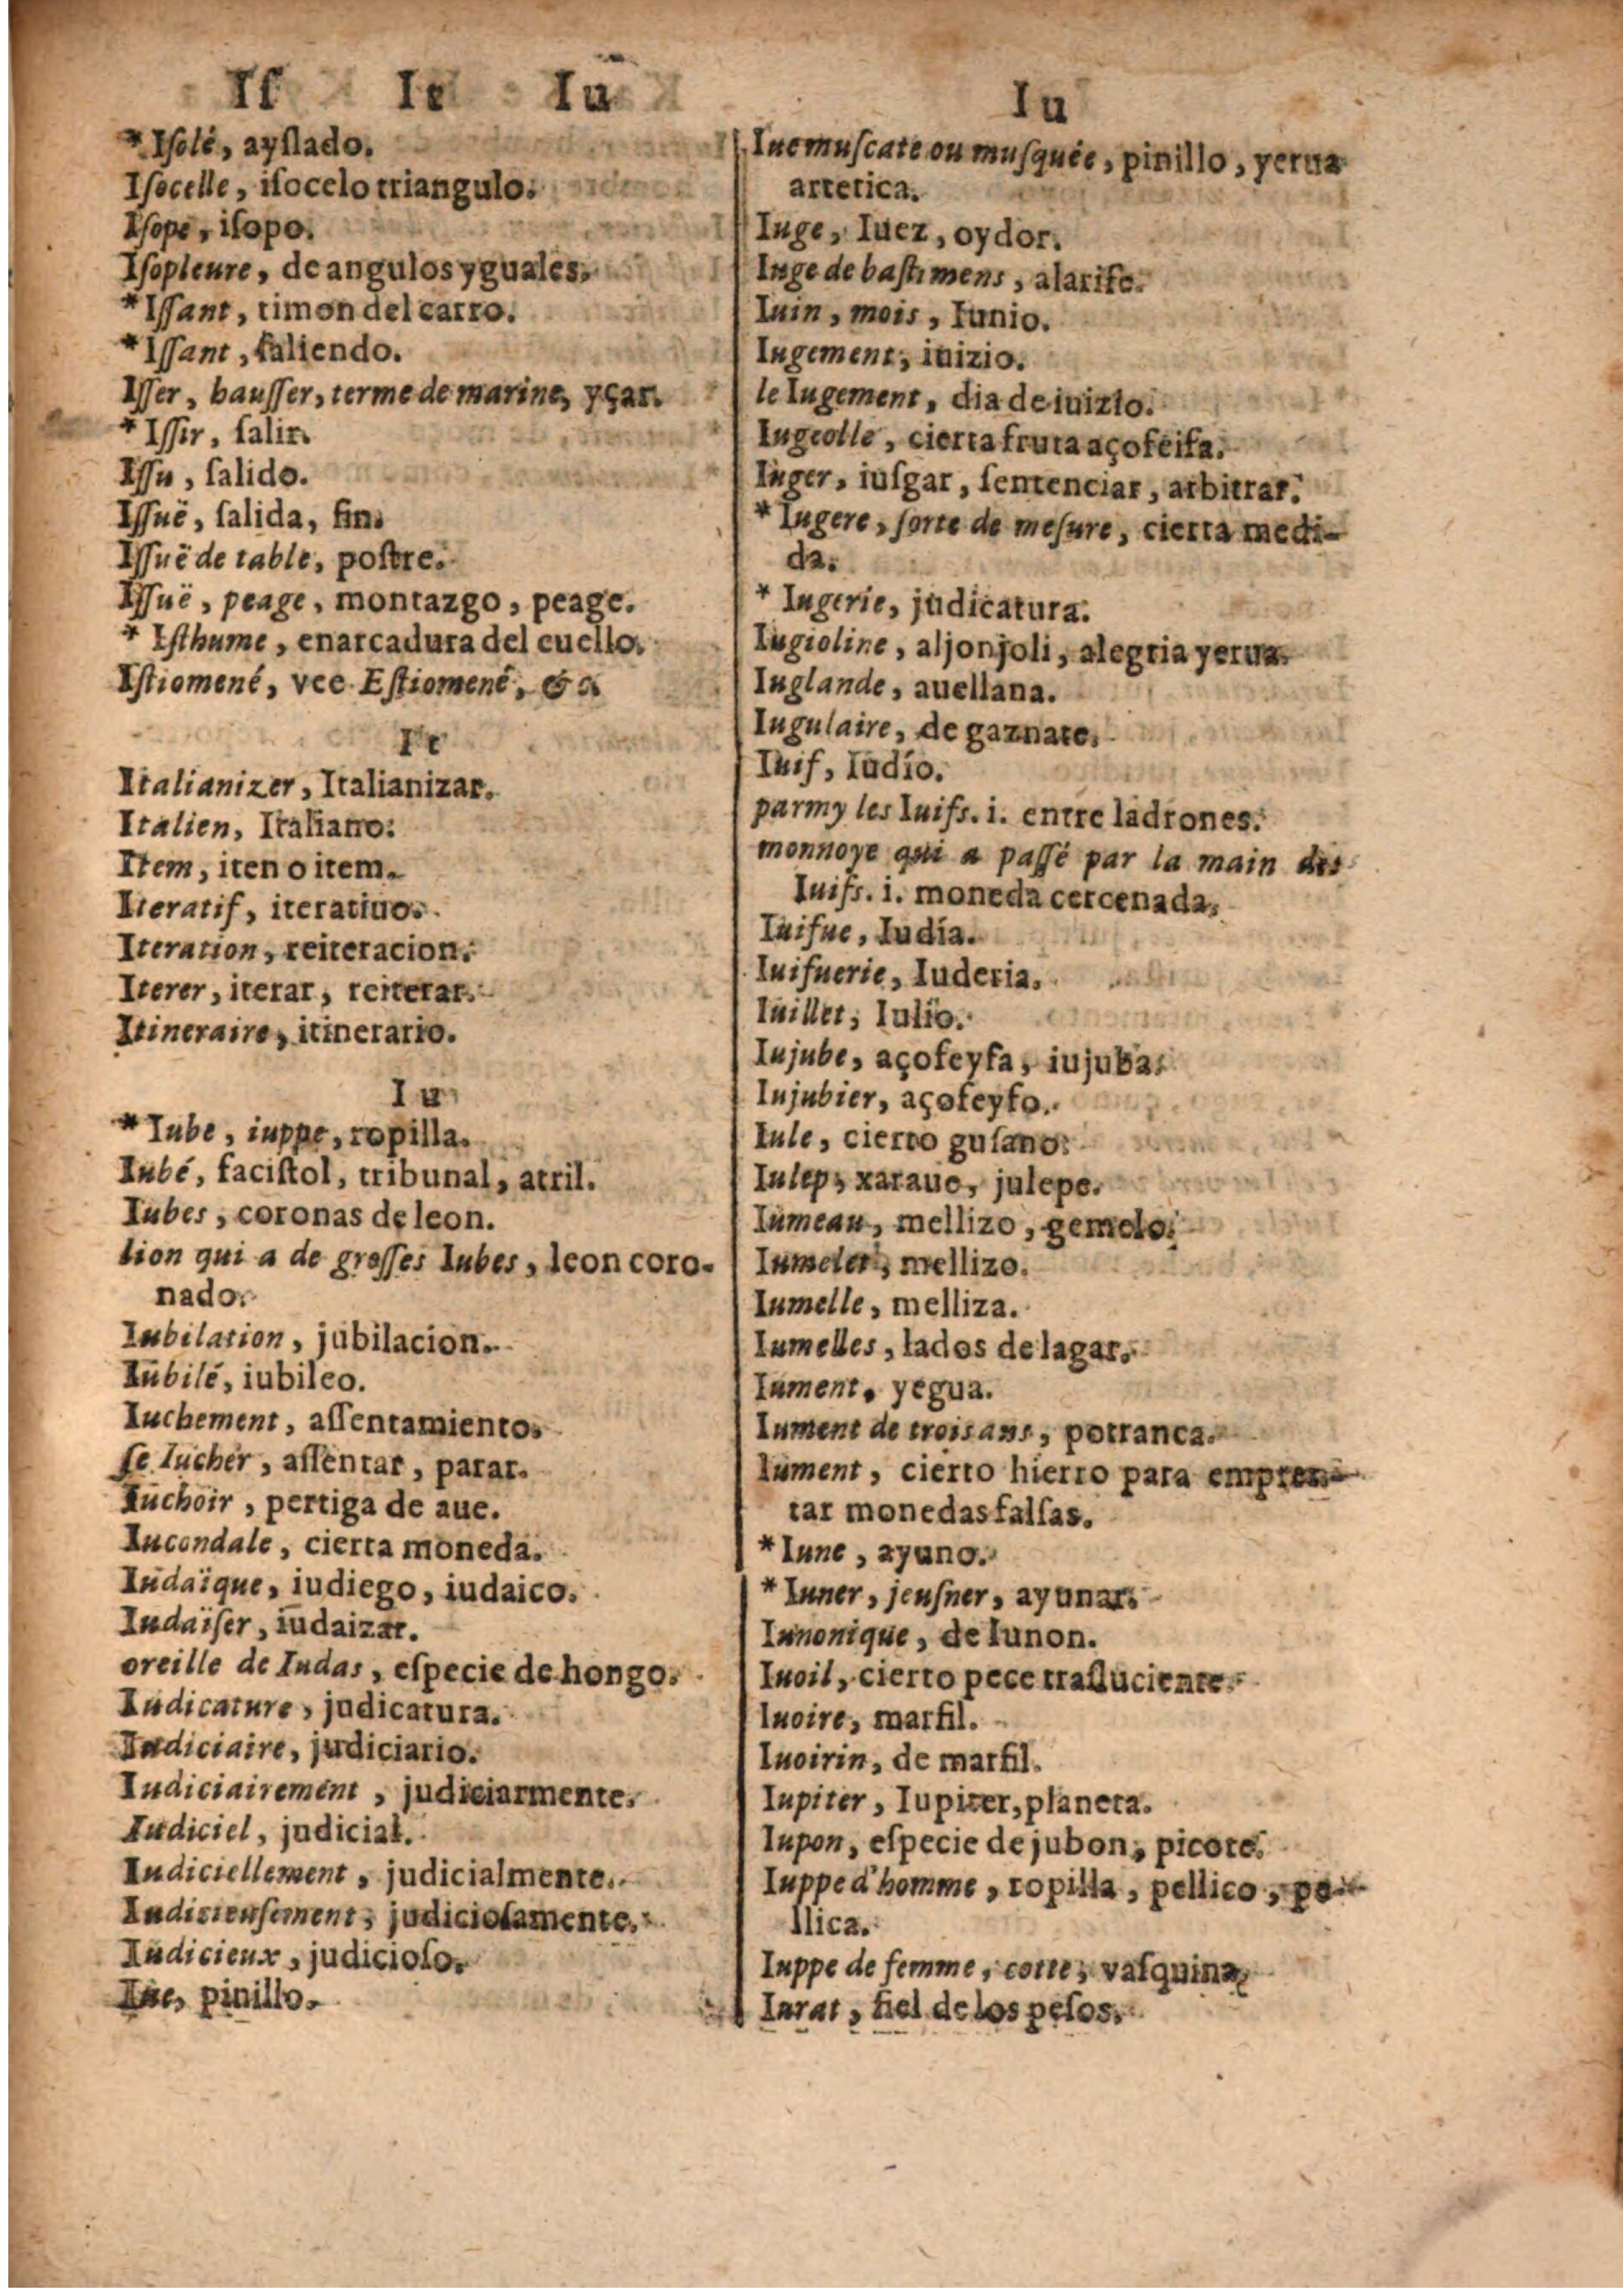 Iſ It Iu
* Iſolé, ayſlado.
Iſocelle, iſocelo triangulo.
Iſope, iſopo.
Iſopleure, de angulos yguales.
* Iſſant, timon del carro.
* Iſſant, ſaliendo.
Iſſer, hauſſer, terme de marine, yçar.
* Iſſir, ſalir.
Iſſu, ſalido.
Iſſuë, ſalida, fin.
Iſſuë de table, poſtre.
Iſſuë, peage, montazgo, peage.
* Iſthume, enarcadura del cuello.
Iſtiomené, vee Eſtiomené, &c.
It
Italianizer, Italianizar.
Italien, Italiano.
Item, iten o item.
Iteratif, iteratiuo.
Iteration, reiteracion.
Iterer, iterar, reiterar.
Itineraire, itinerario.
Iu
* Iube, iuppe, ropilla.
Iubé, faciſtol, tribunal, atril.
Iubes, coronas de leon.
lion qui a de groſſes Iubes, leon coro-
nado.
Iubilation, jubilacion.
Iubilé, iubileo.
Iuchement, aſſentamiento.
ſe Iucher, aſſentar, parar.
Iuchoir, pertiga de aue.
Iucondale, cierta moneda.
Iudaïque, iudiego, iudaico.
Iudaïſer, iudaizar.
oreille de Iudas, eſpecie de hongo.
Iudicature, judicatura.
Iudiciaire, judiciario.
Iudiciairement, judiciarmente.
Iudiciel, judicial.
Iudiciellement, judicialmente.
Iudicieuſement, judicioſamente.
Iudicieux, judicioſo.
Iue, pinillo.
Iu
Iue muſcate ou muſquée, pinillo, yerua
artetica.
Iuge, Iuez, oydor.
Iuge de baſtimens, alarife.
Iuin, mois, Iunio.
Iugement, iuizio.
le Iugement, dia de iuizio.
Iugeolle, cierta fruta açofeifa.
Iuger, iuſgar, ſentenciar, arbitrar.
* Iugere, ſorte de meſure, cierta medi-
da.
* Iugerie, judicatura.
Iugioline, aljonjoli, alegria yerua.
Iuglande, auellana.
Iugulaire, de gaznate.
Iuif, Iudío.
parmy les Iuifs. i. entre ladrones.
monnoye qui a paſſé par la main des
Iuifs. i. moneda cercenada.
Iuifue, Iudía.
Iuifuerie, Iuderia.
Iuillet, Iulio.
Iujube, açofeyfa, iujuba.
Iujubier, açofeyfo.
Iule, cierto guſano.
Iulep, xaraue, julepe.
Iumeau, mellizo, gemelo.
Iumelet, mellizo.
Iumelle, melliza.
Iumelles, lados de lagar.
Iument, yegua.
Iument de trois ans, potranca.
Iument, cierto hierro para empren-
tar monedas falſas.
* Iune, ayuno.
* Iuner, jeuſner, ayunar.
Iunonique, de Iunon.
Iuoil, cierto pece traſluciente.
Iuoire, marfil.
Iuoirin, de marfil.
Iupiter, Iupiter, planeta.
Iupon, eſpecie de jubon, picote.
Iuppe d'homme, ropilla, pellico, pe-
llica.
Iuppe de femme, cotte, vaſquina.
Iurat, fiel de los peſos.